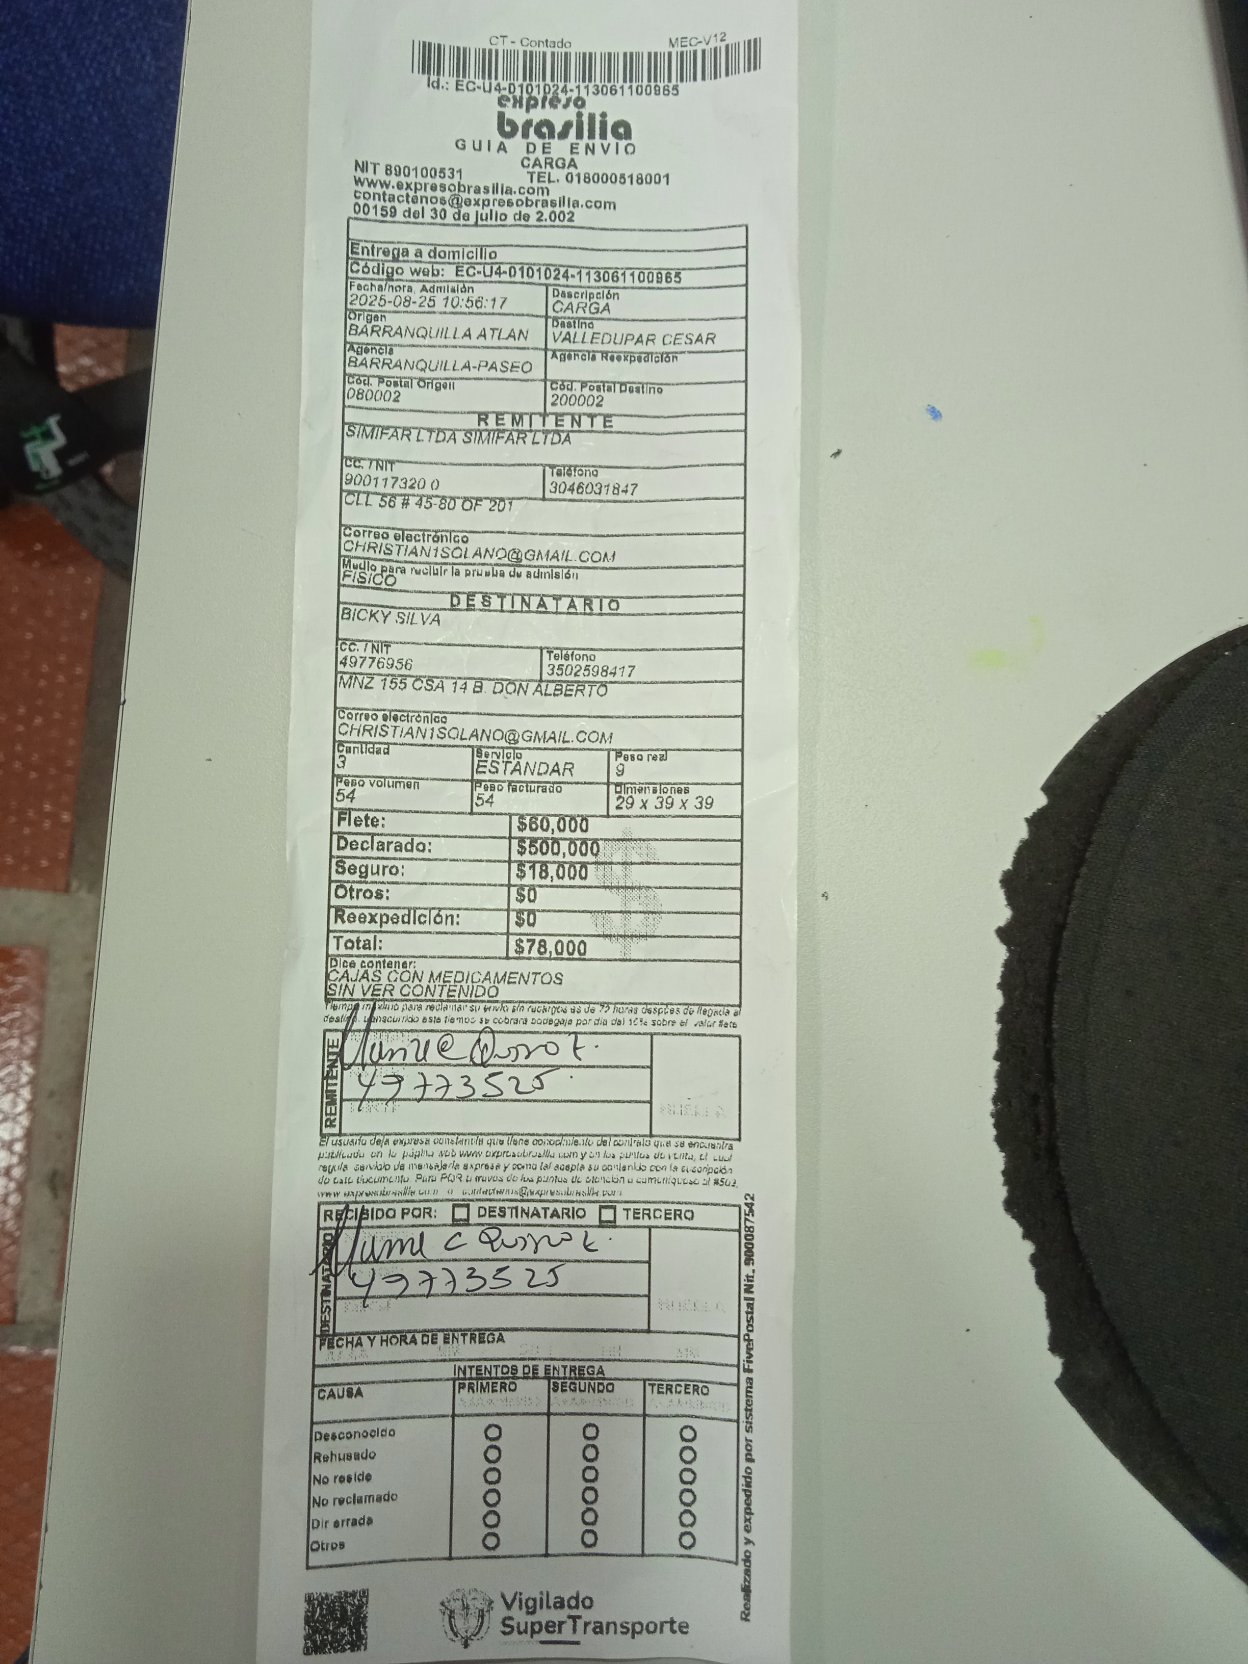 CT - Contado MEC-V12
Id.: EC-U4-0101024-113061100965
expreso
brasilia
GUIA DE ENVIO
CARGA
NIT 890100531 TEL. 018000518001
www.expresobrasilia.com
contactenos@expresobrasilia.com
00159 del 30 de julio de 2.002
Entrega a domicilio
Código web: EC-U4-0101024-113061100965
Fecha/hora. Admisión Descripción
2025-08-25 10:56:17 CARGA
Origen Destino
BARRANQUILLA ATLAN VALLEDUPAR CESAR
Agencia Agencia Reexpedición
BARRANQUILLA-PASEO
Cód. Postal Origen Cód. Postal Destino
080002 200002
REMITENTE
SIMIFAR LTDA SIMIFAR LTDA
CC. / NIT Teléfono
900117320 0 3046031847
CLL 56 # 45-80 OF 201
Correo electrónico
CHRISTIAN1SOLANO@GMAIL.COM
Medio para recibir la prueba de admisión
FISICO
DESTINATARIO
BICKY SILVA
CC. / NIT Teléfono
49776956 3502598417
MNZ 155 CSA 14 B. DON ALBERTO
Correo electrónico
CHRISTIAN1SOLANO@GMAIL.COM
Cantidad Servicio Peso real
3 ESTANDAR 9
Peso volumen Peso facturado Dimensiones
54 54 29 x 39 x 39
Flete: $60,000
Declarado: $500,000
Seguro: $18,000
Otros: $0
Reexpedición: $0
Total: $78,000
$
Dice contener:
CAJAS CON MEDICAMENTOS
SIN VER CONTENIDO
Tiempo máximo para reclamar su envío sin recargos es de 72 horas después de llegada al
destino, transcurrido este tiempo se cobrará bodegaje por día del 10% sobre el valor flete
REMITENTE
49773525
HUELLA
El usuario deja expresa constancia que tiene conocimiento del contrato que se encuentra
publicado en la página web www.expresobrasilia.com y en los puntos de venta, el cual
regula servicio de mensajería expresa y como tal acepta su contenido con la suscripción
de este documento. Para PQR a través de los puntos de atención o comuníquese al #502,
www.expresobrasilia.com o contactenos@expresobrasilia.com
RECIBIDO POR: DESTINATARIO TERCERO
DESTINATARIO
49773525
HUELLA
FECHA Y HORA DE ENTREGA
INTENTOS DE ENTREGA
CAUSA PRIMERO SEGUNDO TERCERO
Desconocido
Rehusado
No reside
No reclamado
Dir errada
Otros
Realizado y expedido por sistema FivePostal Nit. 900087542
Vigilado
SuperTransporte